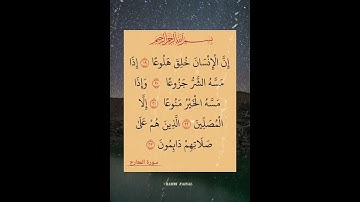 بسم الله الرحمن الرحيم
إِنَّ الْإِنْسَانَ خُلِقَ هَلُوعًا ﴿١٩﴾ إِذَا
مَسَّهُ الشَّرُّ جَزُوعًا ﴿٢٠﴾ وَإِذَا
مَسَّهُ الْخَيْرُ مَنُوعًا ﴿٢١﴾ إِلَّا
الْمُصَلِّينَ ﴿٢٢﴾ الَّذِينَ هُمْ عَلَىٰ
صَلَاتِهِمْ دَائِمُونَ ﴿٢٣﴾
سورة المعارج